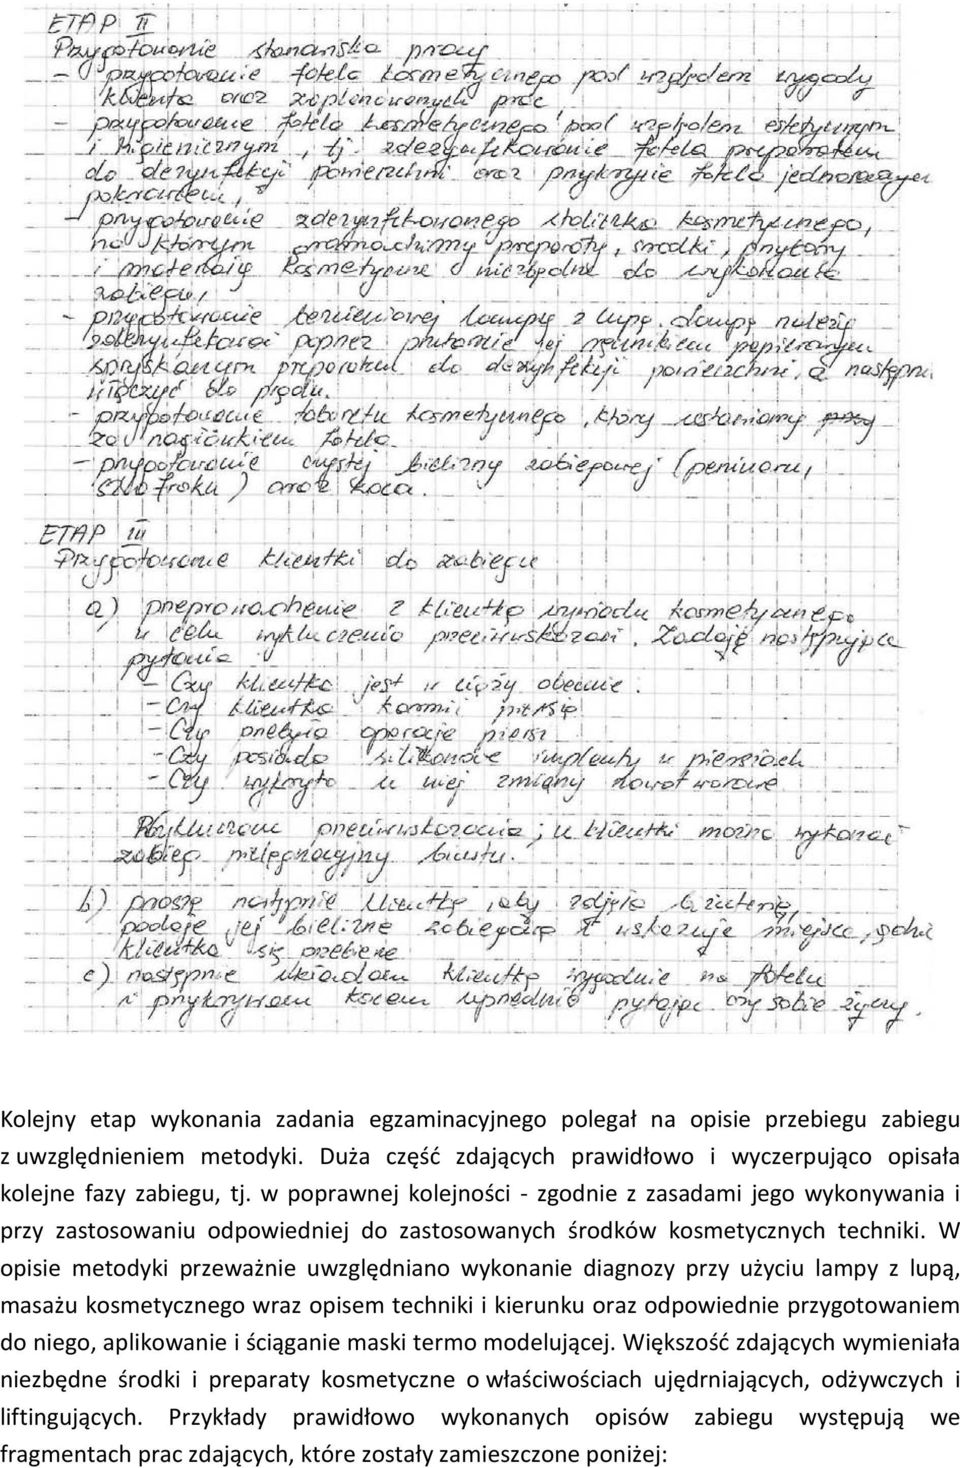 ETAP II
Przygotowanie stanowiska pracy
- przygotowanie fotela kosmetycznego pod względem wygody
klienta oraz zaplanowanych prac,
- przygotowanie fotela kosmetycznego pod względem estetycznym
i higienicznym, tj. zdezynfekowanie fotela preparatem
do dezynfekcji powierzchni oraz przykrycie fotela jednorazowym
pokrowcem,
- przygotowanie zdezynfekowanego stolika kosmetycznego,
na którym gromadzimy preparaty, środki, przybory
i materiały kosmetyczne niezbędne do wykonania
zabiegu,
- przygotowanie bezcieniowej lampy z lupą. Lampę należy
zdezynfekować poprzez przetarcie jej ręcznikiem papierowym
spryskanym preparatem do dezynfekcji powierzchni, a następnie
włączyć do prądu.
- przygotowanie taboretu kosmetycznego, który ustawiamy
za nagłówkiem fotela
- przygotowanie czystej bielizny zabiegowej (peniuaru,
szlafroku) oraz koca.
ETAP III
Przygotowanie klientki do zabiegu
a) przeprowadzenie z klientką wywiadu kosmetycznego
w celu wykluczenia przeciwwskazań. Zadaję następujące
pytania
- Czy klientka jest w ciąży obecnie.
- Czy klientka karmi piersią
- Czy przebyła operacje piersi
- Czy posiada silikonowe implanty w piersiach
- Czy wykryto u niej zmiany nowotworowe
Wykluczono przeciwwskazania; u klientki można wykonać
zabieg pielęgnacyjny biustu.
b) proszę następnie klientkę, aby zdjęła biżuterię,
podaję jej bieliznę zabiegową i wskazuję miejsce, gdzie
klientka się przebierze
c) następnie układam klientkę wygodnie na fotelu
i przykrywam kocem uprzednio pytając czy sobie życzy.
Kolejny etap wykonania zadania egzaminacyjnego polegał na opisie przebiegu zabiegu
z uwzględnieniem metodyki. Duża część zdających prawidłowo i wyczerpująco opisała
kolejne fazy zabiegu, tj. w poprawnej kolejności - zgodnie z zasadami jego wykonywania i
przy zastosowaniu odpowiedniej do zastosowanych środków kosmetycznych techniki. W
opisie metodyki przeważnie uwzględniano wykonanie diagnozy przy użyciu lampy z lupą,
masażu kosmetycznego wraz opisem techniki i kierunku oraz odpowiednie przygotowaniem
do niego, aplikowanie i ściąganie maski termo modelującej. Większość zdających wymieniała
niezbędne środki i preparaty kosmetyczne o właściwościach ujędrniających, odżywczych i
liftingujących. Przykłady prawidłowo wykonanych opisów zabiegu występują we
fragmentach prac zdających, które zostały zamieszczone poniżej: